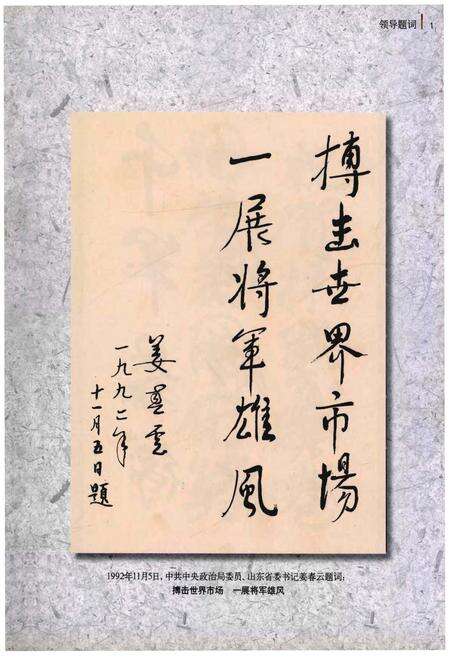 领导题词 1
搏击世界市场
一展将軍雄風
姜春雲
一九九二年
十一月五日題
1992年11月5日，中共中央政治局委员、山东省委书记姜春云题词：
搏击世界市场 一展将军雄风